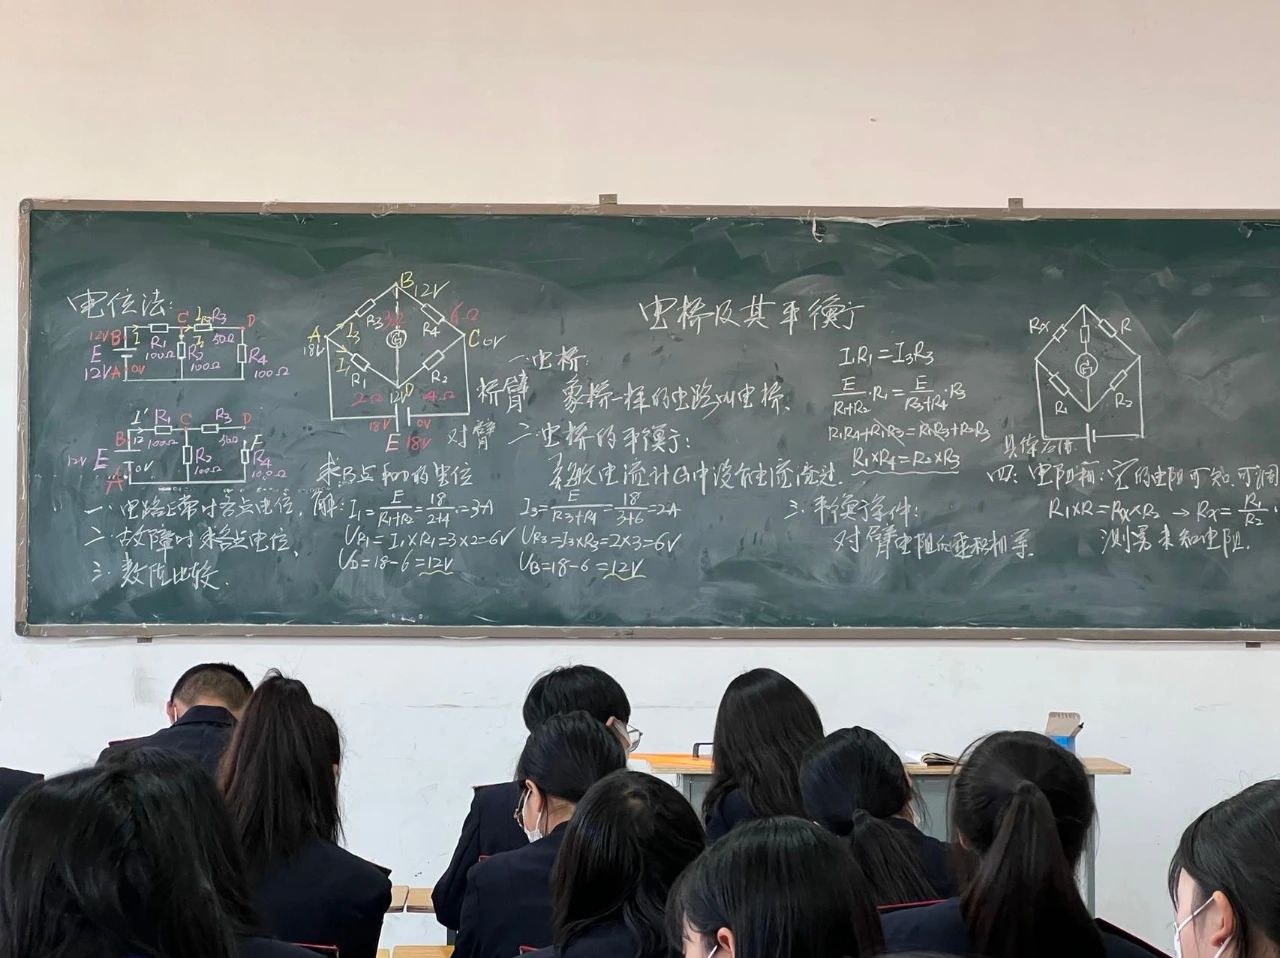 电位法:
12V B I R₁ 100Ω C I₃ R₃ 50Ω D
E 12V A 0V R₂ 100Ω R₄ 100Ω
B I' R₁ 100Ω C R₃ 50Ω
12V E 12 A 0V R₂ 100Ω R₄ 100Ω
一.电路正常时各点电位.
二.故障时求各点电位.
三.数值比较.
B 12V
A 18V I₃ R₃ 3Ω G R₄ 6Ω C 0V
I₁ R₁ 2Ω D 12V R₂ 4Ω
18V E 18V 0V
桥臂
对臂
求B点和D的电位
解: I₁=E/(R₁+R₂)=18/(2+4)=3A
U_R₁=I₁×R₁=3×2=6V
U_D=18-6=12V
I₃=E/(R₃+R₄)=18/(3+6)=2A
U_R₃=I₃×R₃=2×3=6V
U_B=18-6=12V
电桥及其平衡
一.电桥:
象桥一样的电路叫电桥.
二.电桥的平衡:
灵敏电流计G中没有电流流过.
I₁R₁=I₃R₃
E/(R₁+R₂)·R₁=E/(R₃+R₄)·R₃
R₁R₄+R₁R₃=R₁R₃+R₂R₃
R₁×R₄=R₂×R₃
三.平衡条件:
对臂电阻的乘积相等.
Rx R
G
R₁ R₂
四:电阻箱:它的电阻可知.可调
R₁×R=Rx×R₂ → Rx=R₁/R₂
测另未知电阻.